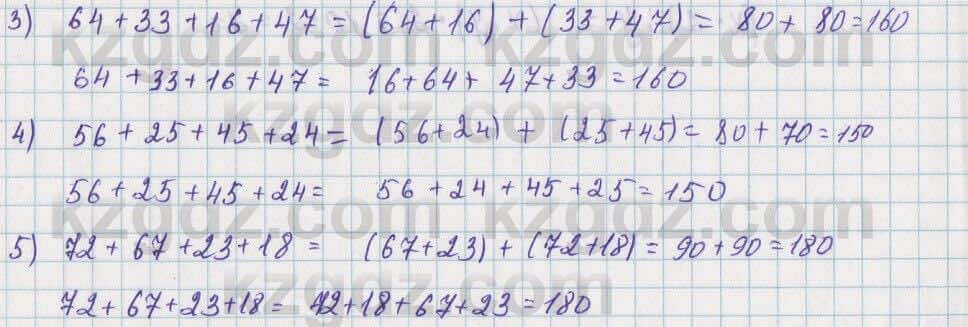 3) 64+33+16+47=(64+16)+(33+47)= 80+80=160
64+33+16+47= 16+64+47+33=160
4) 56+25+45+24=(56+24)+(25+45)=80+70=150
56+25+45+24= 56+24+45+25=150
5) 72+67+23+18= (67+23)+(72+18)=90+90=180
72+67+23+18= 72+18+67+23=180
kzgdz.com
kzgdz.com
kzgdz.com